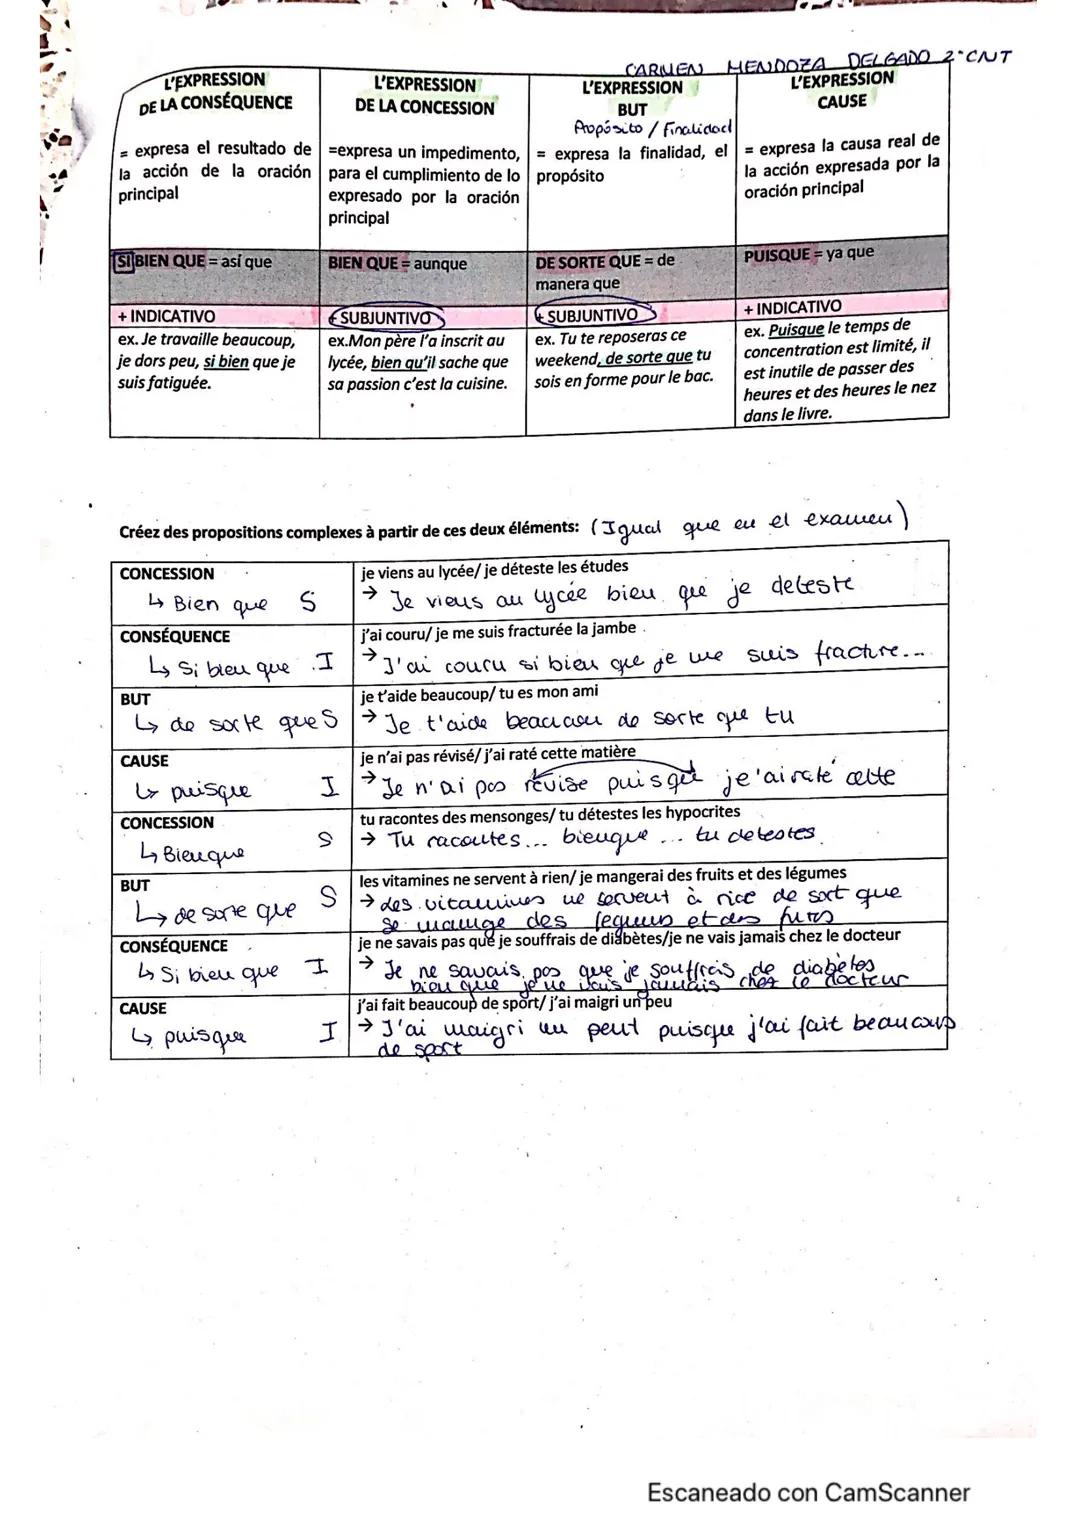 CARMEN MENDOZA DELGADO 2ºCNT
L'EXPRESSION
DE LA CONSÉQUENCE
= expresa el resultado de
la acción de la oración
principal
L'EXPRESSION
DE LA CONCESSION
=expresa un impedimento,
para el cumplimiento de lo
expresado por la oración
principal
L'EXPRESSION
BUT
Propósito / Finalidad
= expresa la finalidad, el
propósito
L'EXPRESSION
CAUSE
= expresa la causa real de
la acción expresada por la
oración principal
SI BIEN QUE = así que
BIEN QUE = aunque
DE SORTE QUE = de
manera que
PUISQUE = ya que
+ INDICATIVO
+ SUBJUNTIVO
+ SUBJUNTIVO
+ INDICATIVO
ex. Je travaille beaucoup,
je dors peu, si bien que je
suis fatiguée.
ex.Mon père l'a inscrit au
lycée, bien qu'il sache que
sa passion c'est la cuisine.
ex. Tu te reposeras ce
weekend, de sorte que tu
sois en forme pour le bac.
ex. Puisque le temps de
concentration est limité, il
est inutile de passer des
heures et des heures le nez
dans le livre.
Créez des propositions complexes à partir de ces deux éléments: (Igual que en el examen)
CONCESSION
↳ Bien que S
je viens au lycée/ je déteste les études
→ Je viens au lycée bien que je deteste
CONSÉQUENCE
↳ Si bien que I
j'ai couru/ je me suis fracturée la jambe
→ J'ai couru si bien que je me suis fracture...
BUT
↳ de sorte que S
je t'aide beaucoup/ tu es mon ami
→ Je t'aide de sorte que tu
CAUSE
↳ puisque I
je n'ai pas révisé/ j'ai raté cette matière
→ Je n'ai pas révise puisque je'ai raté cette
CONCESSION
↳ Bien que S
tu racontes des mensonges/ tu détestes les hypocrites
→ Tu racontes... bienque ... tu detestes
BUT
↳ de sorte que S
les vitamines ne servent à rien/ je mangerai des fruits et des légumes
→ des vitamines ne servent à de sort que
mange des et des
CONSÉQUENCE
↳ Si bien que I
je ne savais pas que je souffrais de diabètes/je ne vais jamais chez le docteur
→ Je ne savais pas que je souffrais de diabètes
bien que je ne vais jamais chez le docteur
CAUSE
↳ puisque I
j'ai fait beaucoup de sport/ j'ai maigri un peu
→ J'ai maigri un peut puisque j'ai fait beaucoup
de sport
Escaneado con CamScanner